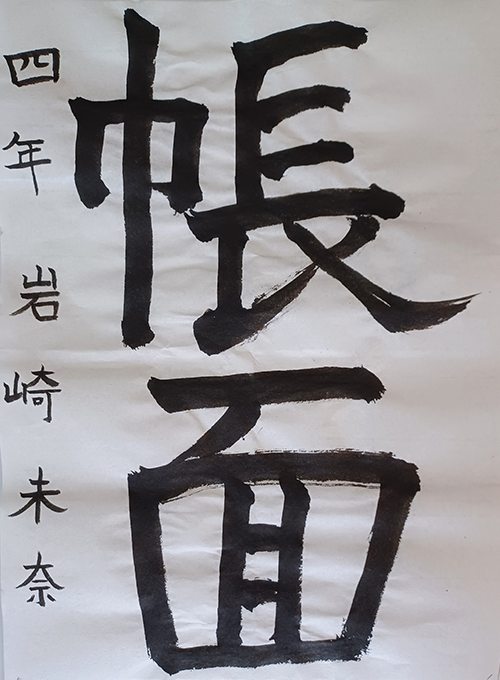 帳面
四年 岩崎未奈